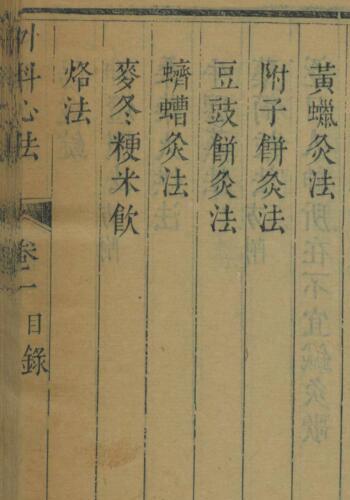 黃蠟灸法
附子餅灸法
豆豉餅灸法
蠐螬灸法
麥冬粳米飲
烙法
外科心法 卷二 目錄